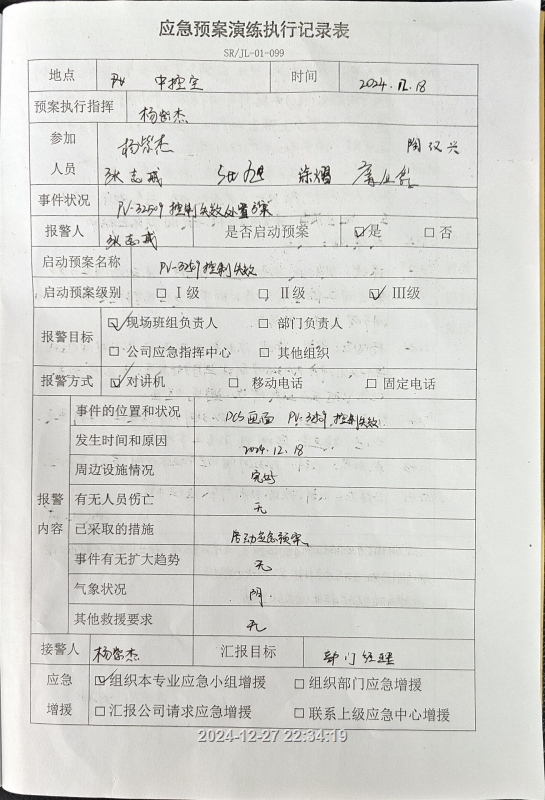 应急预案演练执行记录表
SR/JL-01-099
地点 中控室 时间 2024.12.18
预案执行指挥 杨紫杰
参加 杨紫杰 陶汉兴
人员 张志成 徐熠
事件状况 PV-32509控制失效处置方案
报警人 张志成 是否启动预案 ☑是 □否
启动预案名称 PV-3259控制失效
启动预案级别 □ Ⅰ级 □ Ⅱ级 ☑ Ⅲ级
报警目标 ☑现场班组负责人 □ 部门负责人
□ 公司应急指挥中心 □ 其他组织
报警方式 ☑对讲机 □ 移动电话 □ 固定电话
报警内容 事件的位置和状况 DCS画面 PV-3259控制失效
发生时间和原因 2024.12.18
周边设施情况 完好
有无人员伤亡 无
已采取的措施 启动应急预案
事件有无扩大趋势 无
气象状况 阴
其他救援要求 无
接警人 杨紫杰 汇报目标 部门经理
应急 ☑组织本专业应急小组增援 □ 组织部门应急增援
增援 □汇报公司请求应急增援 □ 联系上级应急中心增援
2024-12-27 22:34:19